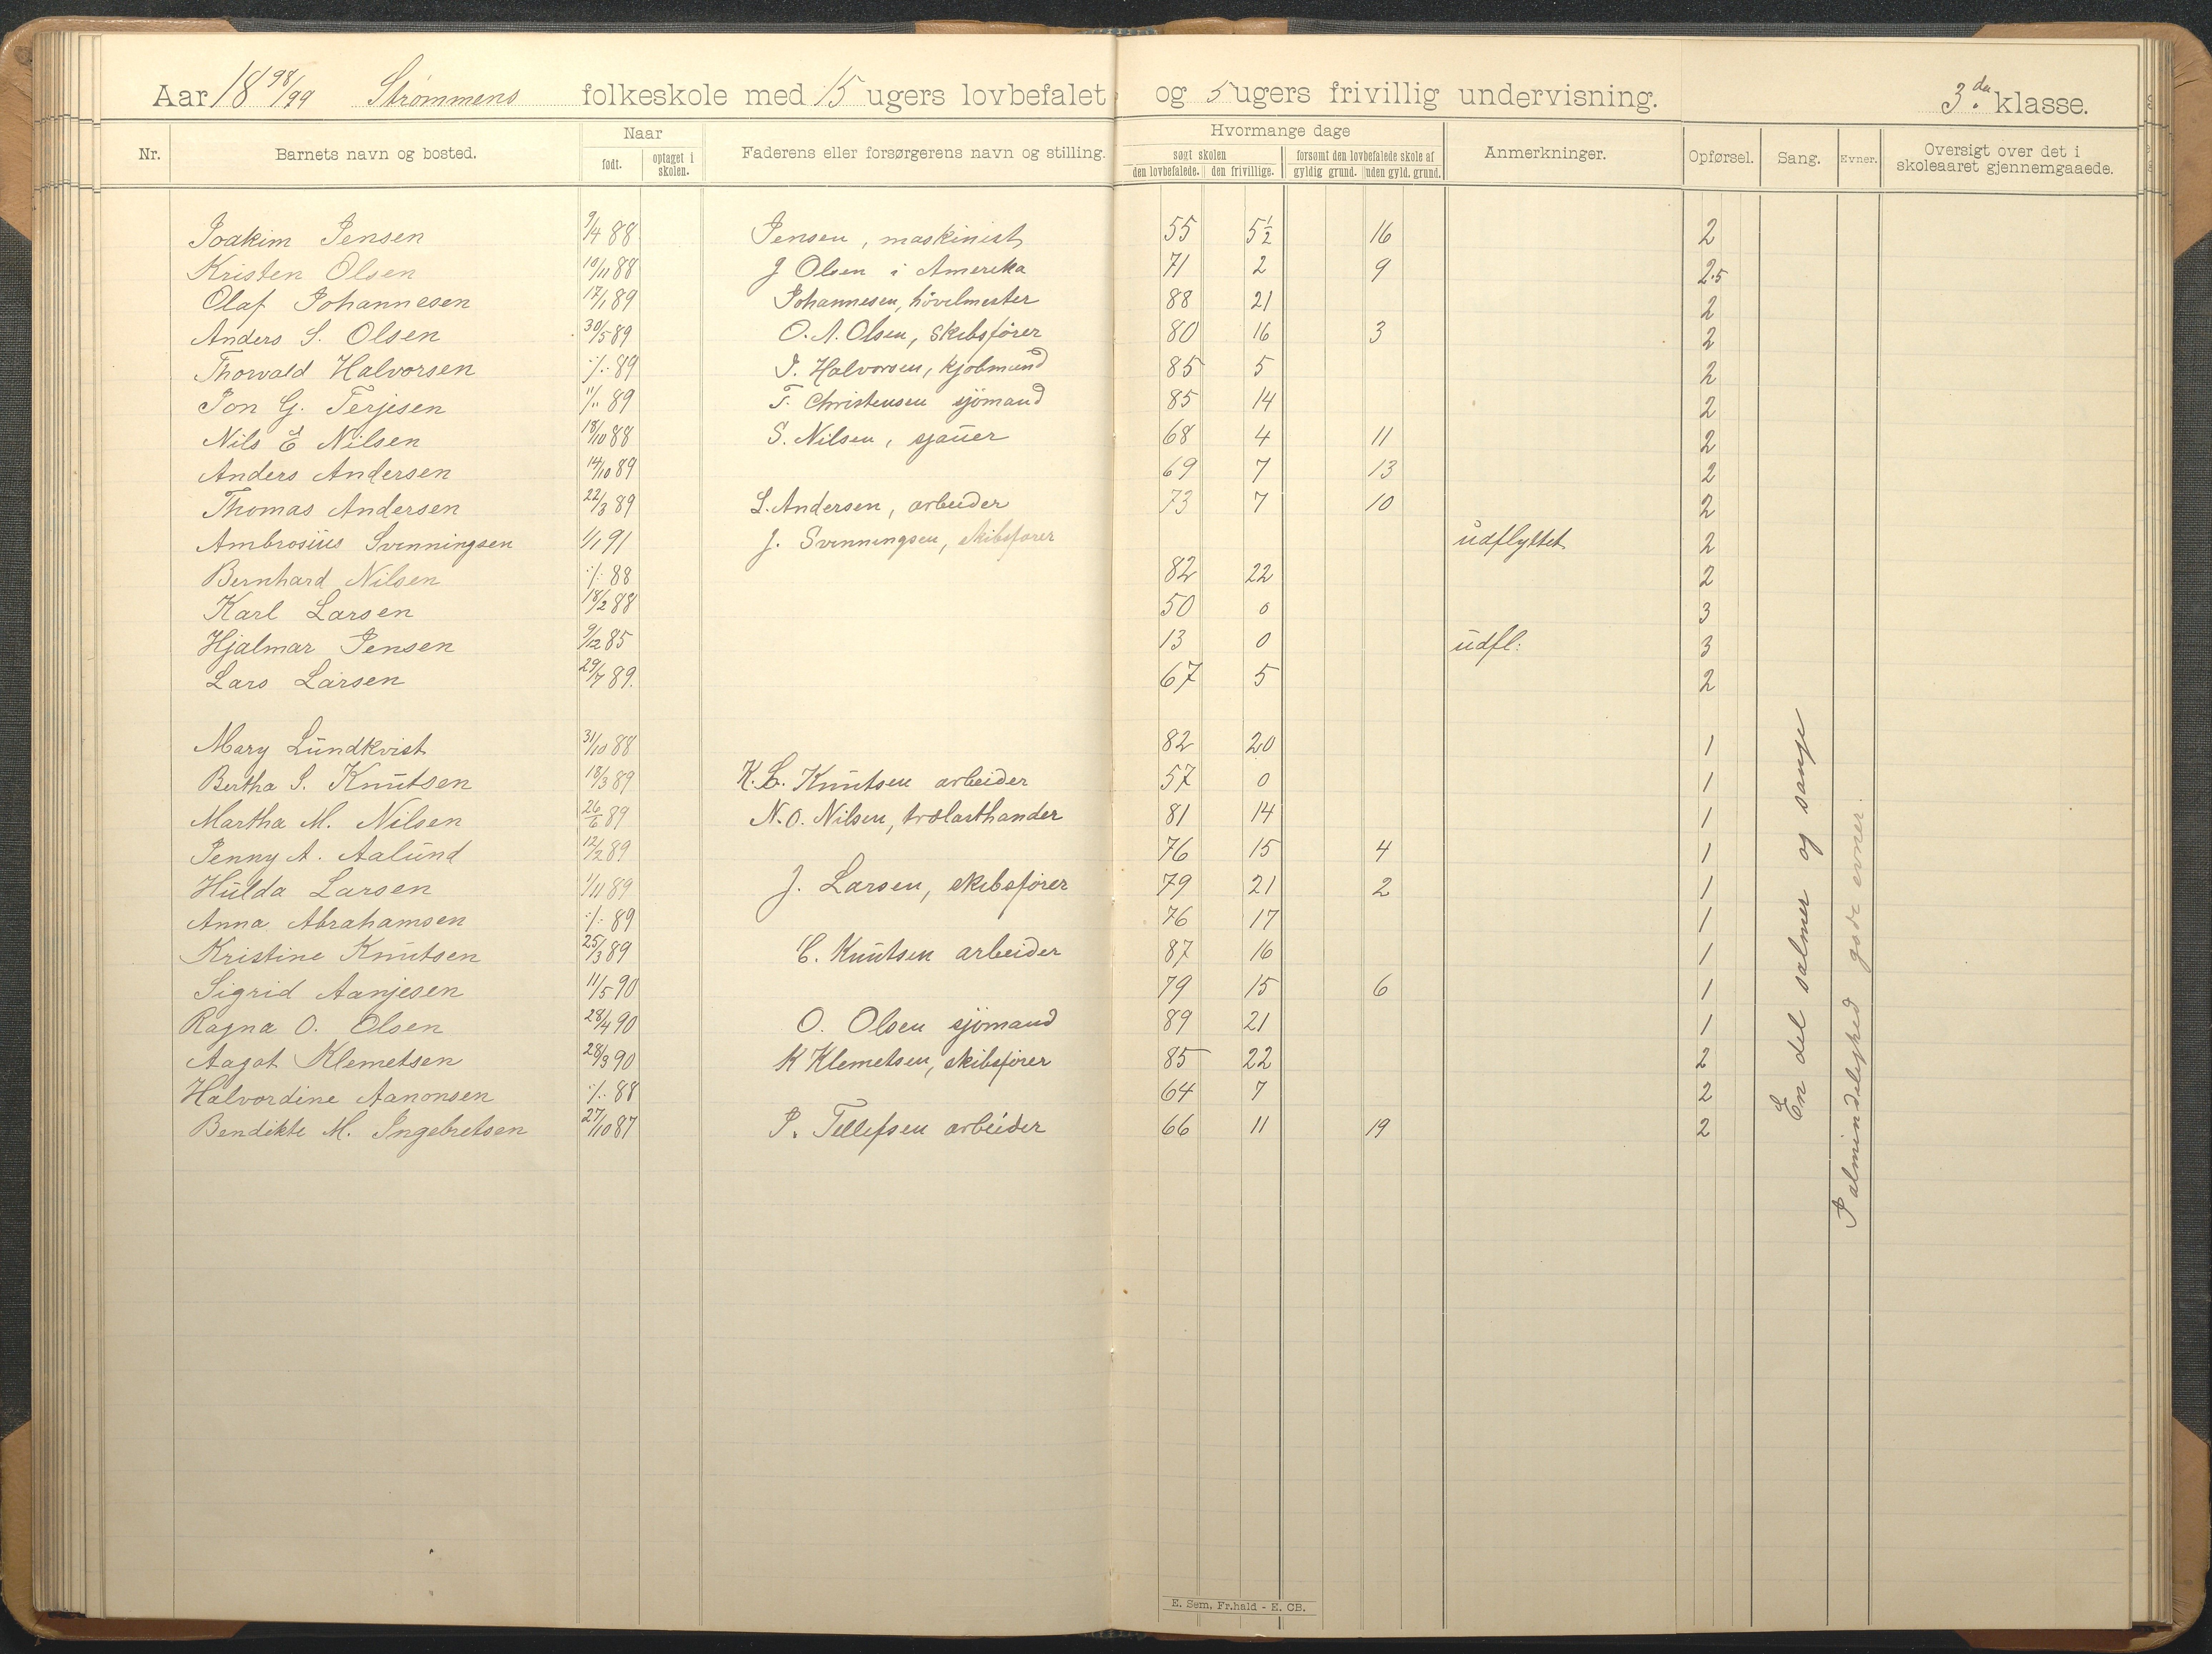 Aar 18 98/99 Strømmens folkeskole med 15 ugers lovbefalet og 5 ugers frivillig undervisning. 3.die klasse.
Nr. Barnets navn og bosted. Naar født. optaget i skolen. Faderens eller forsørgerens navn og stilling. Hvormange dage søgt skolen den lovbefalede. den frivillige. forsømt den lovbefalede skole af gyldig grund. uden gyld. grund. Anmerkninger. Opførsel. Sang. Evner. Oversigt over det i skoleaaret gjennemgaaede.
Joakim Jensen 9/4 88 Jensen, maskinist 55 5½ 16 2
Kristen Olsen 10/11 88 J Olsen i Amerika 71 2 9 2.5
Olaf Johannesen 17/1 89 Johannesen, hövelmester 88 21 2
Anders S. Olsen 30/5 89 O. A. Olsen, skibsfører 80 16 3 2
Thorvald Halvorsen ./. 89 J. Halvorsen, kjøbmand 85 5 2
Jon G. Terjesen 11/.. 89 T. Christensen sjömand 85 14 2
Nils E Nilsen 18/10 88 S. Nilsen, sjauer 68 4 11 2
Anders Andersen 14/10 89 69 7 13 2
Thomas Andersen 22/3 89 L. Andersen, arbeider 73 7 10 2
Ambrosius Svenningsen 1/1 91 J. Svenningsen, skibsfører udflyttet 2
Bernhard Nilsen ./. 88 82 22 2
Karl Larsen 18/2 88 50 0 3
Hjalmar Jensen 9/12 85 13 0 udfl: 3
Lars Larsen 29/7 89. 67 5 2
Mary Lundkvist 31/10 88 82 20 1
Bertha S. Knutsen 18/3 89 K. C. Knutsen arbeider 57 0 1
Martha M. Nilsen 26/6 89 N. O. Nilsen, trælasthander 81 14 1
Jenny A. Aalund 12/2 89 76 15 4 1
Hulda Larsen 1/11 89 J. Larsen, skibsfører 79 21 2 1
Anna Abrahamsen ./. 89 76 17 1
Kristine Knutsen 25/3 89 C. Knutsen arbeider 87 16 1
Sigrid Aanjesen 11/5 90 79 15 6 1
Ragna O. Olsen 28/4 90 O. Olsen sjömand 89 21 1
Aagot Klemetsen 28/3 90 K Klemetsen, skibsfører 85 22 2
Halvordine Aanonsen ./. 88 64 7 2
Bendikte M. Ingebretsen 27/10 87 P. Tellefsen arbeider 66 11 19 2
En del salmer og sange
I almindelighed gode evner.
E. Sem, Fr.hald - E. CB.